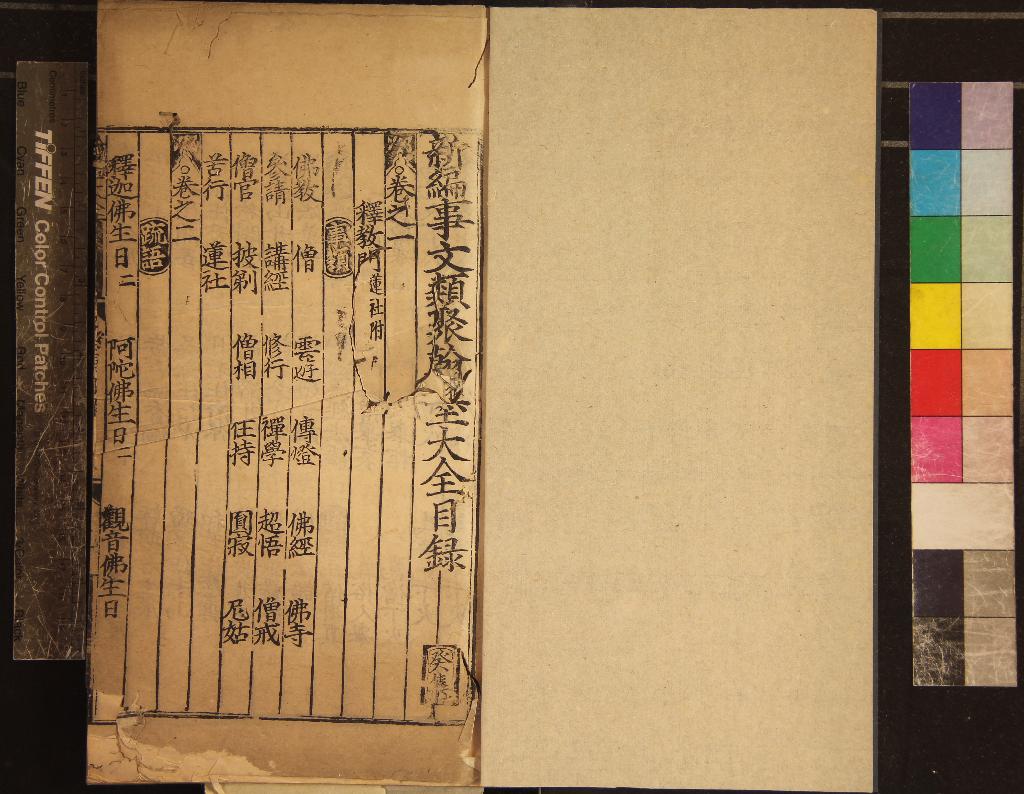 新編事文類聚翰墨大全目録
癸集
卷之一
釋教門 蓮社附
事類
佛教 僧 雲遊 傳燈 佛經 佛寺
參請 講經 修行 禪學 超悟 僧戒
僧官 披剃 僧相 住持 圓寂 尼姑
苦行 蓮社
卷之二
疏語
釋迦佛生日二 阿陀佛生日二 觀音佛生日
TIFFEN Color Control Patches
Blue Cyan Green Yellow